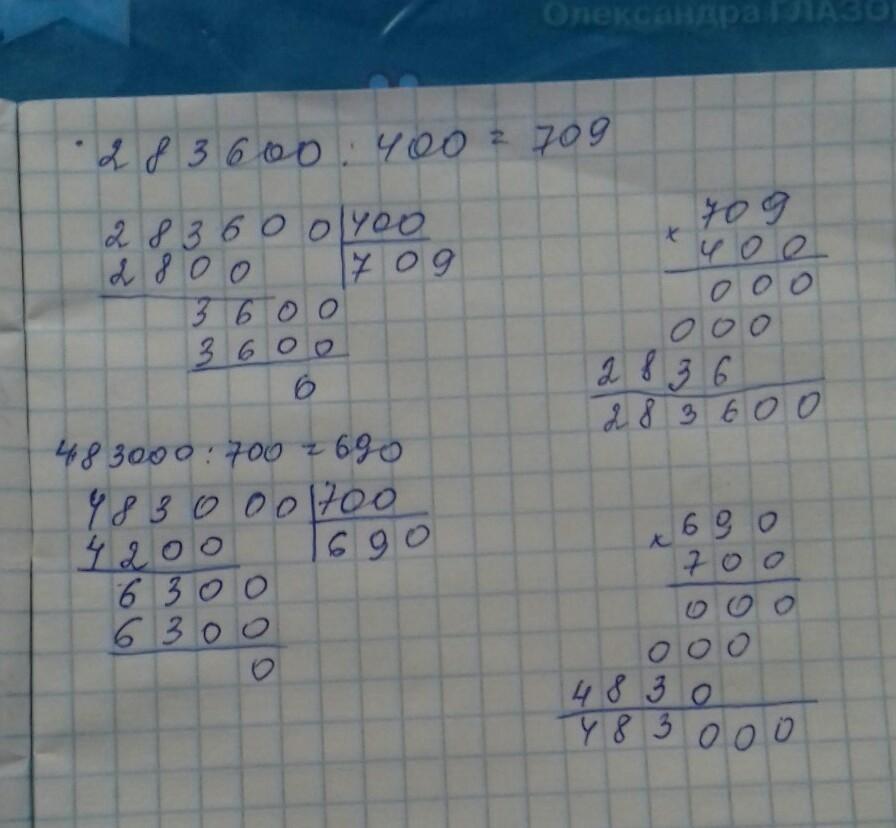 Олександра ГЛАЗО
283600 : 400 = 709
283600 400
2800 709
3600
3600
0
× 709
400
000
000
2836
283600
483000 : 700 = 690
483000 700
4200 690
6300
6300
0
× 690
700
000
000
4830
483000